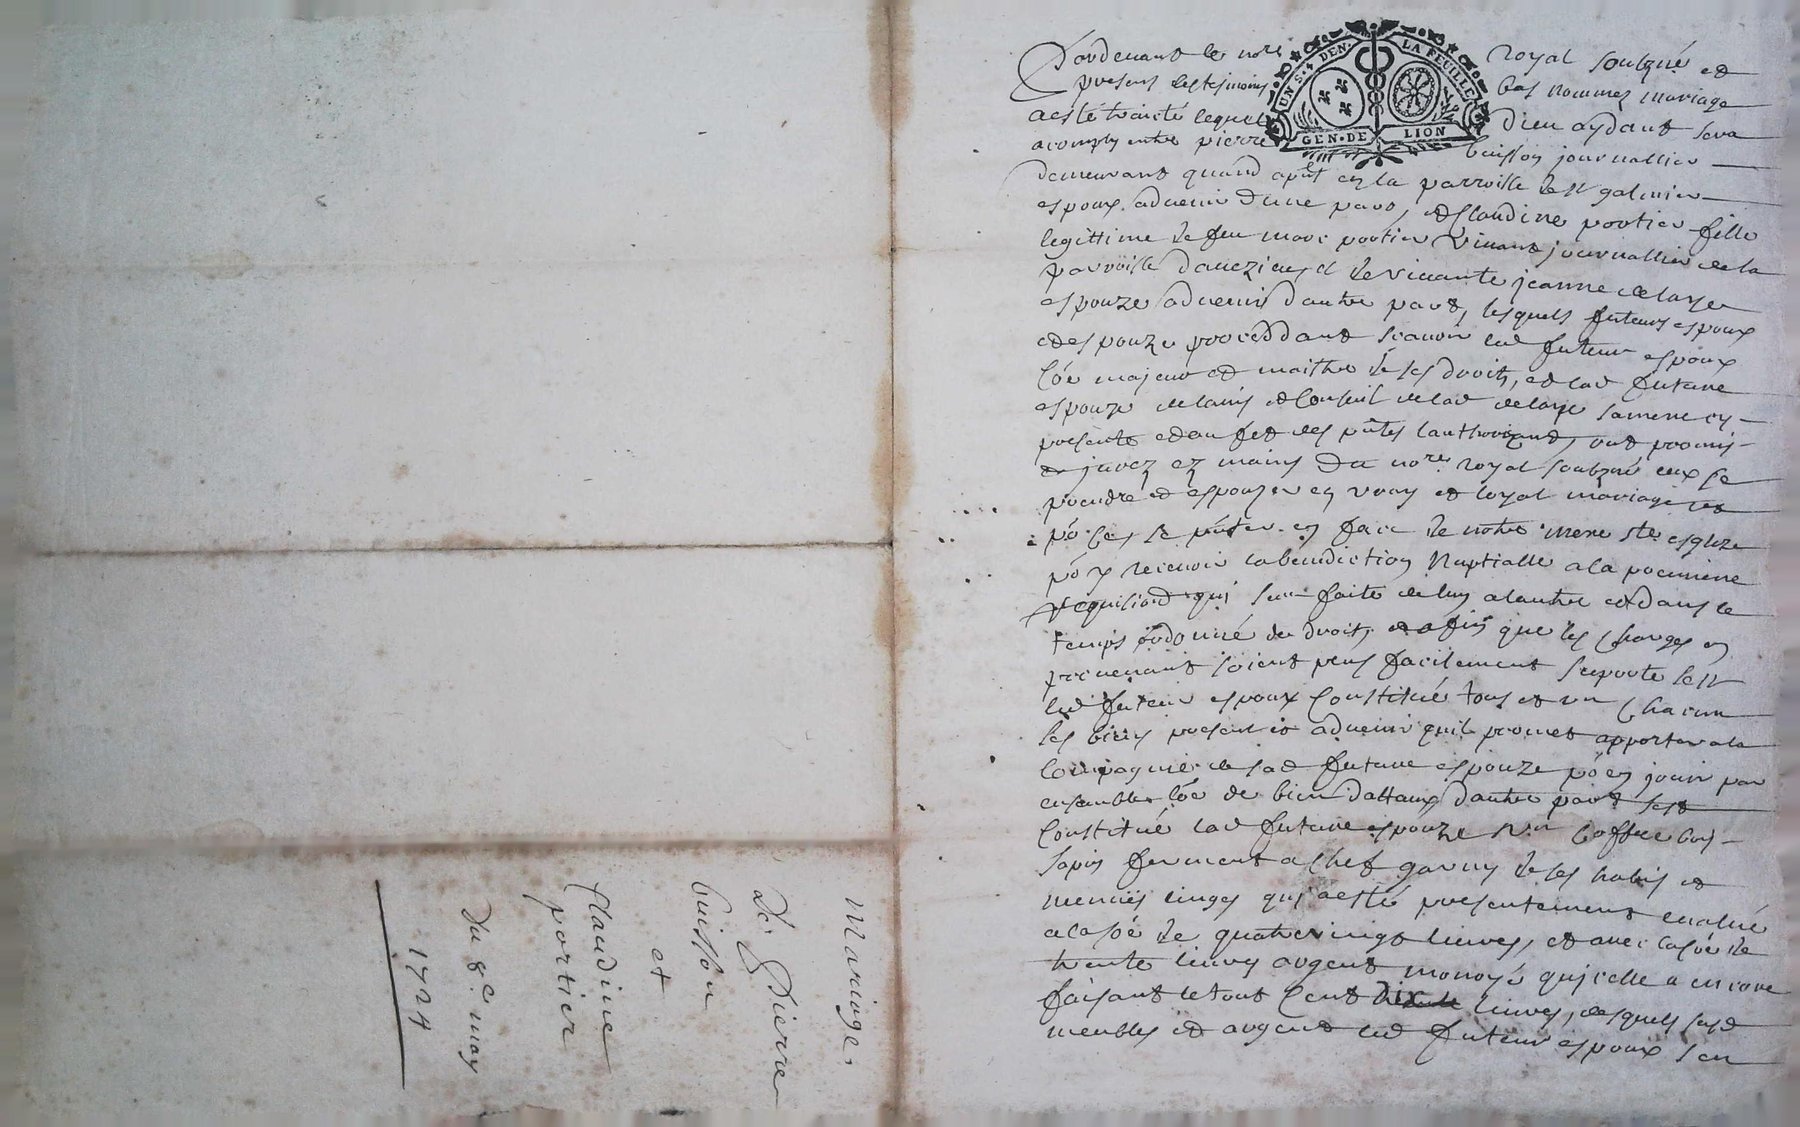 Pardevant le nore royal soubzné et
presens les tesmoins bas nommez mariage
a esté traicté lequel Dieu aydant sera
acomply entre pierre buisson journallier
demeurant quand apnt en la parroisse de St galmier
espoux advenir d'une part, et Claudine portier fille
legittime de feu marc portier vivant journallier de la
parroisse d'aveizieu et de vivante jeanne delarge
espouze advenir d'autre part, lesquels futeurs espoux
et espouze proceddant scavoir led futeur espoux
co&#233; majeur et maistre de ses droits, et lad future
espouze de lavis et conseil de lad delarge sa mere cy
presente et au fet des pntes l'authorizant, ont promis
et juréz ez mains du nore royal soubzné eux se
prendre et espouzer en vray et loyal mariage et
po ce, se pnter en face de notre mere Ste esglize
po y recevoir la benediction Nuptialle a la premiere
requisiõn qui sera faite de lun a lautre et dans le
temps ordonné de droit, et afin que les charges en
provenant soient plus facilement suporté sest
led futeur espoux constitué tous et un chacun
ses biens present et advenir qu'il promet apporter a la
compagnie de sad future espouze po en jouir par
ensemble coe de bien dattaux, d'autre part sest
constitué lad future espouze un coffre bois
sapin fermant a clef garny de ses habis et
menues linges qui a esté presentement evalué
a la soe de quatrevingt livres, et avec la soe de
trente livres argent monoyé qu'icelle a encore
faisant le tout cent dix livres, desquels susd
meubles et argent led futeur espoux sen
UN S. 4 DEN. LA FEUILLE
GEN. DE LION
Mariage
De Pierre
buisson
et
Claudine
portier
Du 8e may
1724